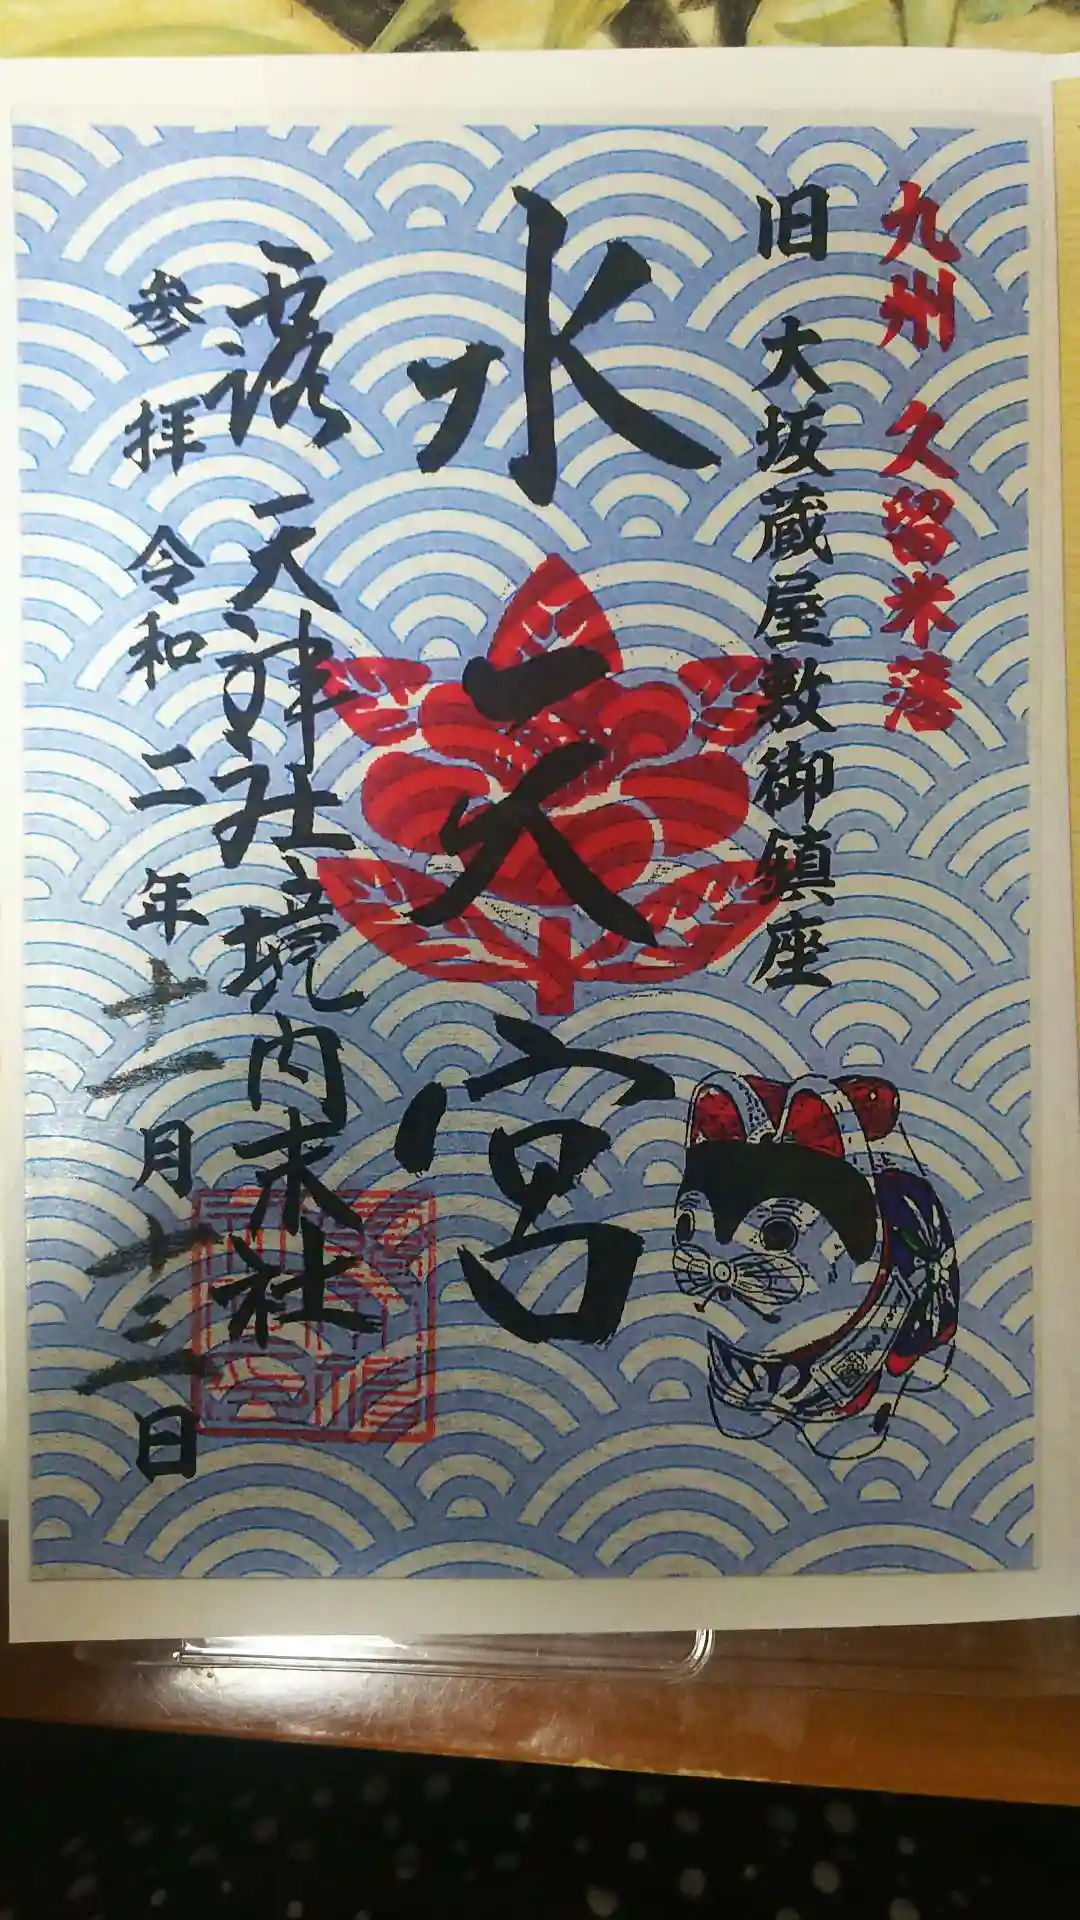 九州 久留米藩
旧 大坂蔵屋敷御鎮座
水天宮
露天神社境内末社
参拝 令和二年十一月十二日